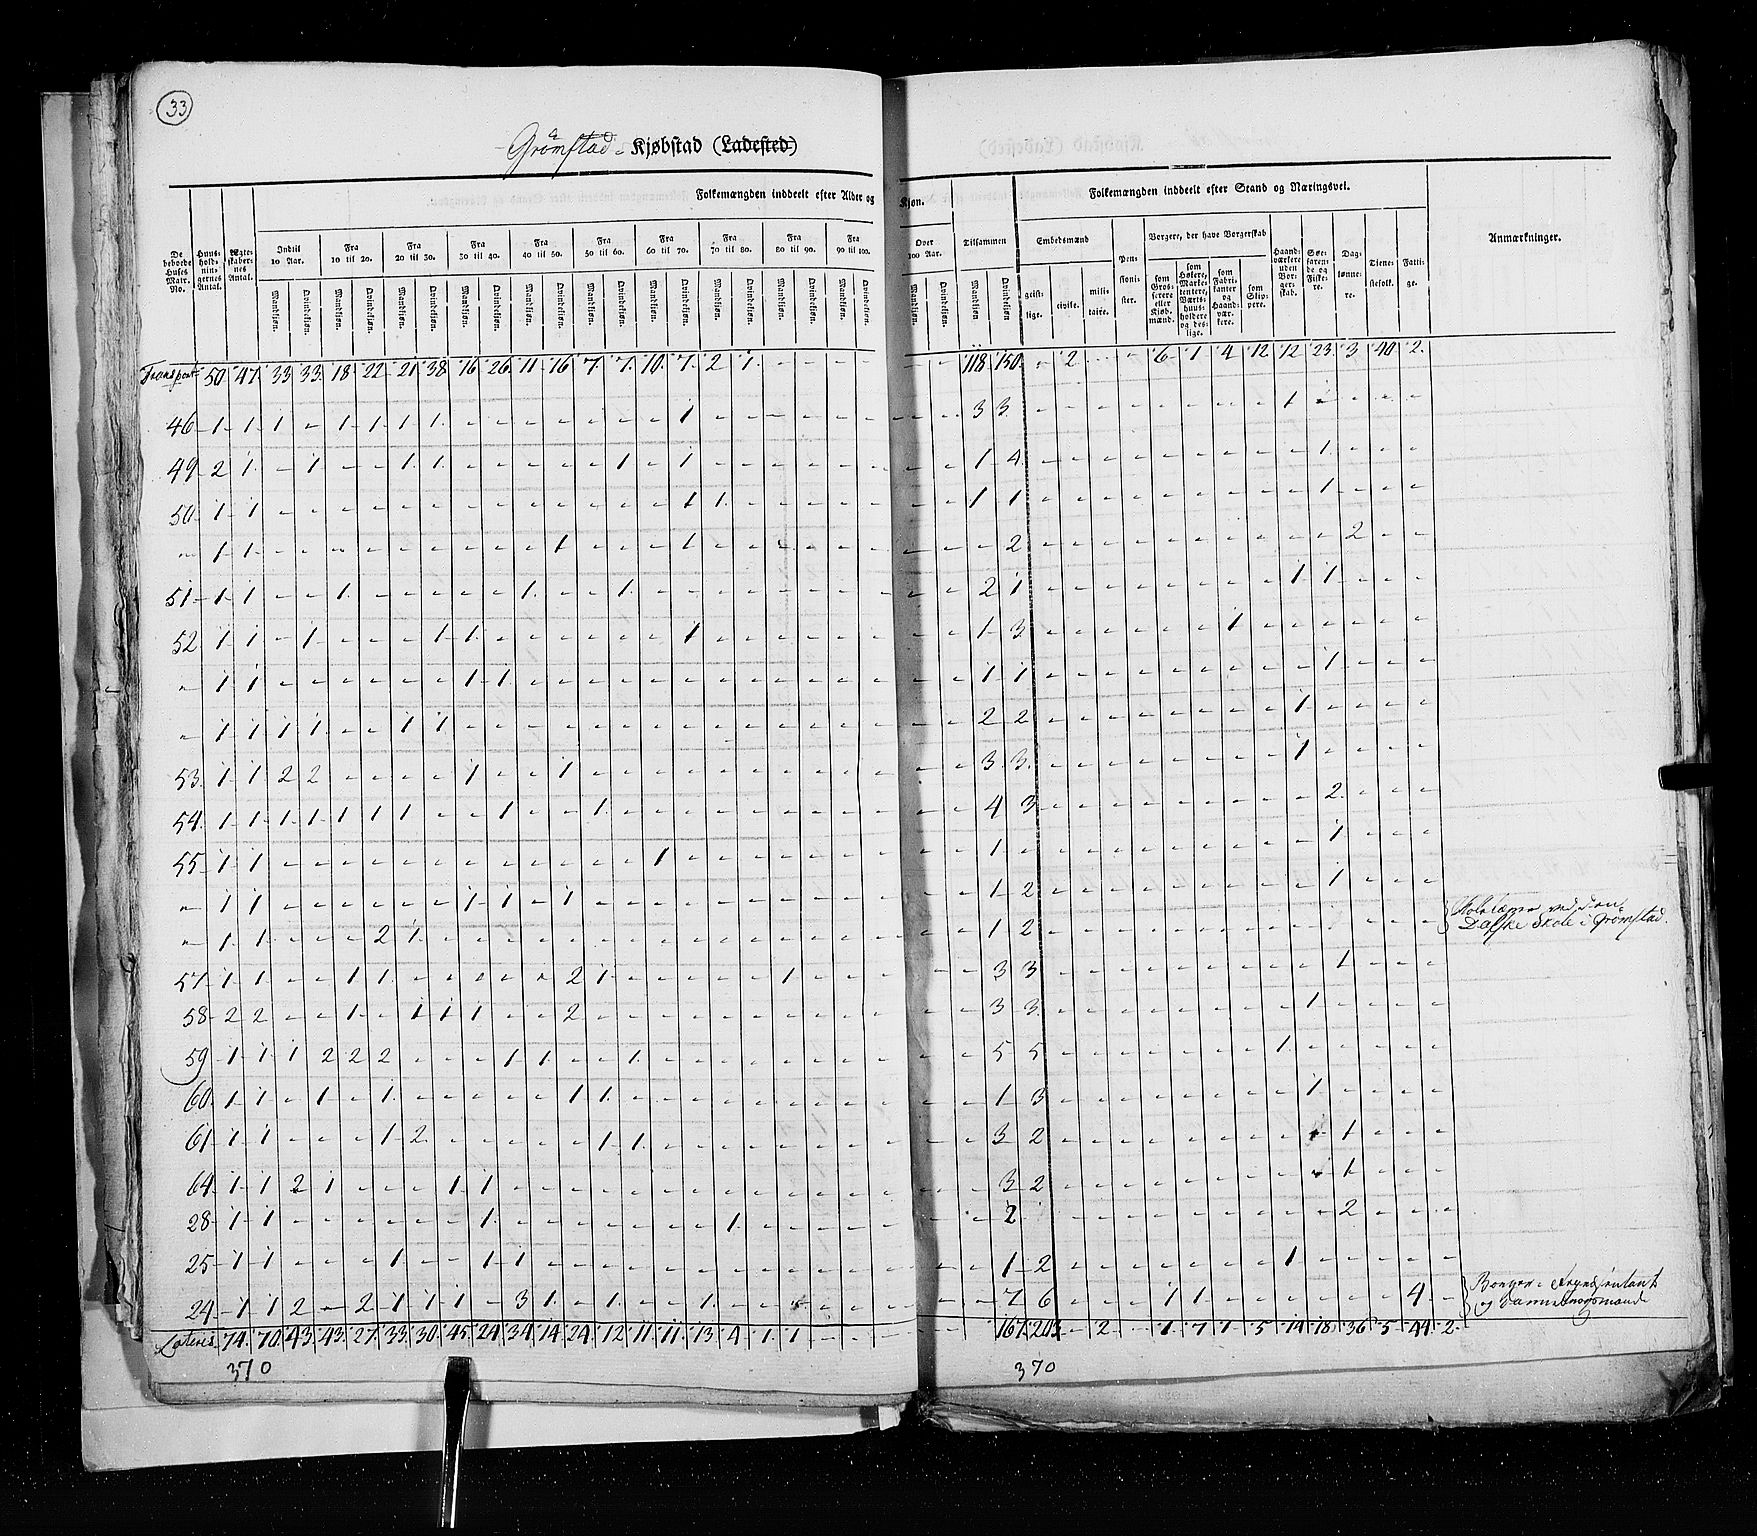 33
Grømstad Kjøbstad (Ladested)
Folkemængden inddeelt efter Alder og Kjøn.
Folkemængden inddeelt efter Stand og Næringsvei.
De beboede Huses Matr. No.
Huus-hold-nin-gernes Antal.
Ægte-skaber-nes Antal.
Indtil 10 Aar.
Fra 10 til 20.
Fra 20 til 30.
Fra 30 til 40.
Fra 40 til 50.
Fra 50 til 60.
Fra 60 til 70.
Fra 70 til 80.
Fra 80 til 90.
Fra 90 til 100.
Over 100 Aar.
Tilsammen
Embedsmænd
Pen-sioni-ster.
Borgere, der have Borgerskab
Haand-værkere uden Bor-ger-skab.
Søe-faren-de og Fiske-re.
Dag-lønne-re.
Tjene-stefolk.
Fatti-ge.
Anmærkninger.
Mandkjøn. Qvindekjøn. Mandkjøn. Qvindekjøn. Mandkjøn. Qvindekjøn. Mandkjøn. Qvindekjøn. Mandkjøn. Qvindekjøn. Mandkjøn. Qvindekjøn. Mandkjøn. Qvindekjøn. Mandkjøn. Qvindekjøn. Mandkjøn. Qvindekjøn. Mandkjøn. Qvindekjøn. Mandkjøn. Qvindekjøn. Mandkjøn. Qvindekjøn.
geist-lige.
civile.
mili-taire.
som Gros-serere eller Kjøb-mænd.
som Høkere, Marke-tentere, Værts-huus-holdere og des-lige.
som Fabri-kanter og Haand-vær-kere.
som Skip-pere.
Transport 50 47 33 33 18 22 21 38 16 26 11 16 7 7 10 7 2 1 - - - - - - 118 150 - 2 - - 6 1 4 12 12 23 3 40 2
46 1 1 1 - 1 1 1 1 - - - - - - - 1 - - - - - - - - 3 3 - - - - - - - - 1 - - - -
49 2 1 - 1 - - 1 1 - - - - - 1 - 1 - - - - - - - - 1 4 - - - - - - - - - 1 - - -
50 1 1 - - - - - - - - - - - - - 1 1 - - - - - - - 1 1 - - - - - - - - - 1 - - -
" 1 1 - - - - - - - - - 1 - - - 1 - - - - - - - - - 2 - - - - - - - - - - 2 - -
51 1 1 - - 1 - - - - - 1 - - 1 - - - - - - - - - - 2 1 - - - - - - - - 1 1 - - -
52 1 1 - 1 - - - 1 1 - - - - - - 1 - - - - - - - - 1 3 - - - - - - 1 - - - - - -
" 1 1 - - - - - - 1 1 - - - - - - - - - - - - - - 1 1 - - - - - - - - - 1 - - -
" 1 1 1 1 - - 1 1 - - - - - - - - - - - - - - - - 2 2 - - - - - - - - 1 - - - -
53 1 1 2 2 - - - - 1 - - 1 - - - - - - - - - - - - 3 3 - - - - - - - - 1 - - - -
54 1 1 1 1 1 1 1 - - 1 - - 1 - - - - - - - - - - - 4 3 - - - - - - - - - 2 - - -
55 1 1 - - - - - - - - - - - - 1 - - - - - - - - - 1 - - - - - - - - - - 1 - - -
" 1 1 - - - - - - 1 1 - 1 - - - - - - - - - - - - 1 2 - - - - - - - - - 1 - - -
" 1 1 - - - 2 1 - - - - - - - - - - - - - - - - - 1 2
Skole ved den
Skole i Grømstad.
57 1 1 - - 1 1 - - - - - 2 1 - - - - - 1 - - - - - 3 3 - - - - - - - - - 1 - - -
58 2 2 - - 1 - 1 1 1 - - 2 - - - - - - - - - - - - 3 3 - - - - - - - - 1 - - - -
59 1 1 1 2 2 2 - - - 1 1 - - 1 - - - - - - - - - - 5 5 - - - - - - - 1 - - - - -
60 1 1 - 1 - 1 - - - - - 1 1 - - - - - - - - - - - 1 3 - - - - - - - - 1 - - - -
61 1 1 - - - 1 2 - - - - - 1 1 - - - - - - - - - - 3 2 - - - - - - - - - 1 - - -
64 1 1 2 1 - - - 1 1 - - - - - - - - - - - - - - - 3 2 - - - - - - - - - 1 - - -
28 1 1 - - - - - - 1 - - - - - - - 1 - - - - - - - 2 - - - - - - - - - 2 - - -
25 1 1 - - - 1 - - 1 1 - - - - - - - - - - - - - - 1 2 - - - - - - - 1 - - - - -
24 1 1 2 - 2 1 1 1 - 3 1 - 1 - - 1 - - - - - - - - 7 6 - - - - 1 1 - - - - - 4 -
Borger Repræsentant
og Dannebrogsmand
Lateris 74 70 43 43 27 33 30 45 24 34 14 24 12 11 11 13 4 1 1 - - - - - 167 203 - 2 - 1 7 1 5 14 18 36 5 44 2
370
370